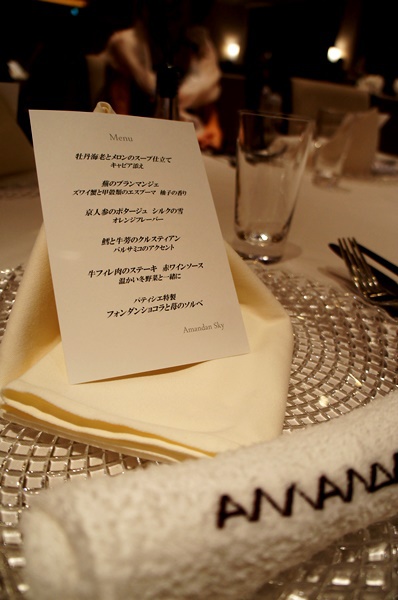 Menu
牡丹海老とメロンのスープ仕立て
キャビア添え
蕪のブランマンジェ
ズワイ蟹と甲殻類のエスプーマ 柚子の香り
京人参のポタージュ シルクの雪
オレンジフレーバー
鱈と牛蒡のクルスティアン
バルサミコのアクセント
牛フィレ肉のステーキ 赤ワインソース
温かい冬野菜と一緒に
パティシエ特製
フォンダンショコラと苺のソルベ
Amandan Sky
AMANDA